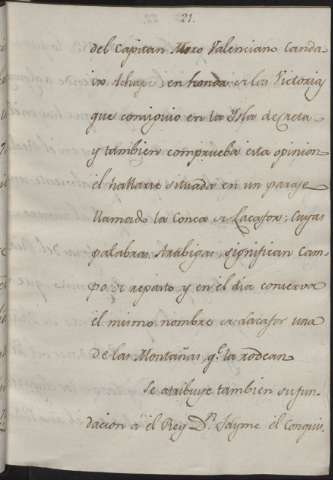 21.
del Capitan Moro Valenciano
en honda de las Victorias
que consiguio en la Isla de Creta
y tambien comprueba esta opinion
el hallarse situada en un parage
llamado la Conca de Lacafor; Cuyas
palabras Arabigas significan Cam-
po de reparto y en el dia conserva
el mismo nombre de alacafor una
de las Montañas q.e la rodean
Se atribuye tambien su fun-
dacion á el Rey D.n Jayme el Conquis.